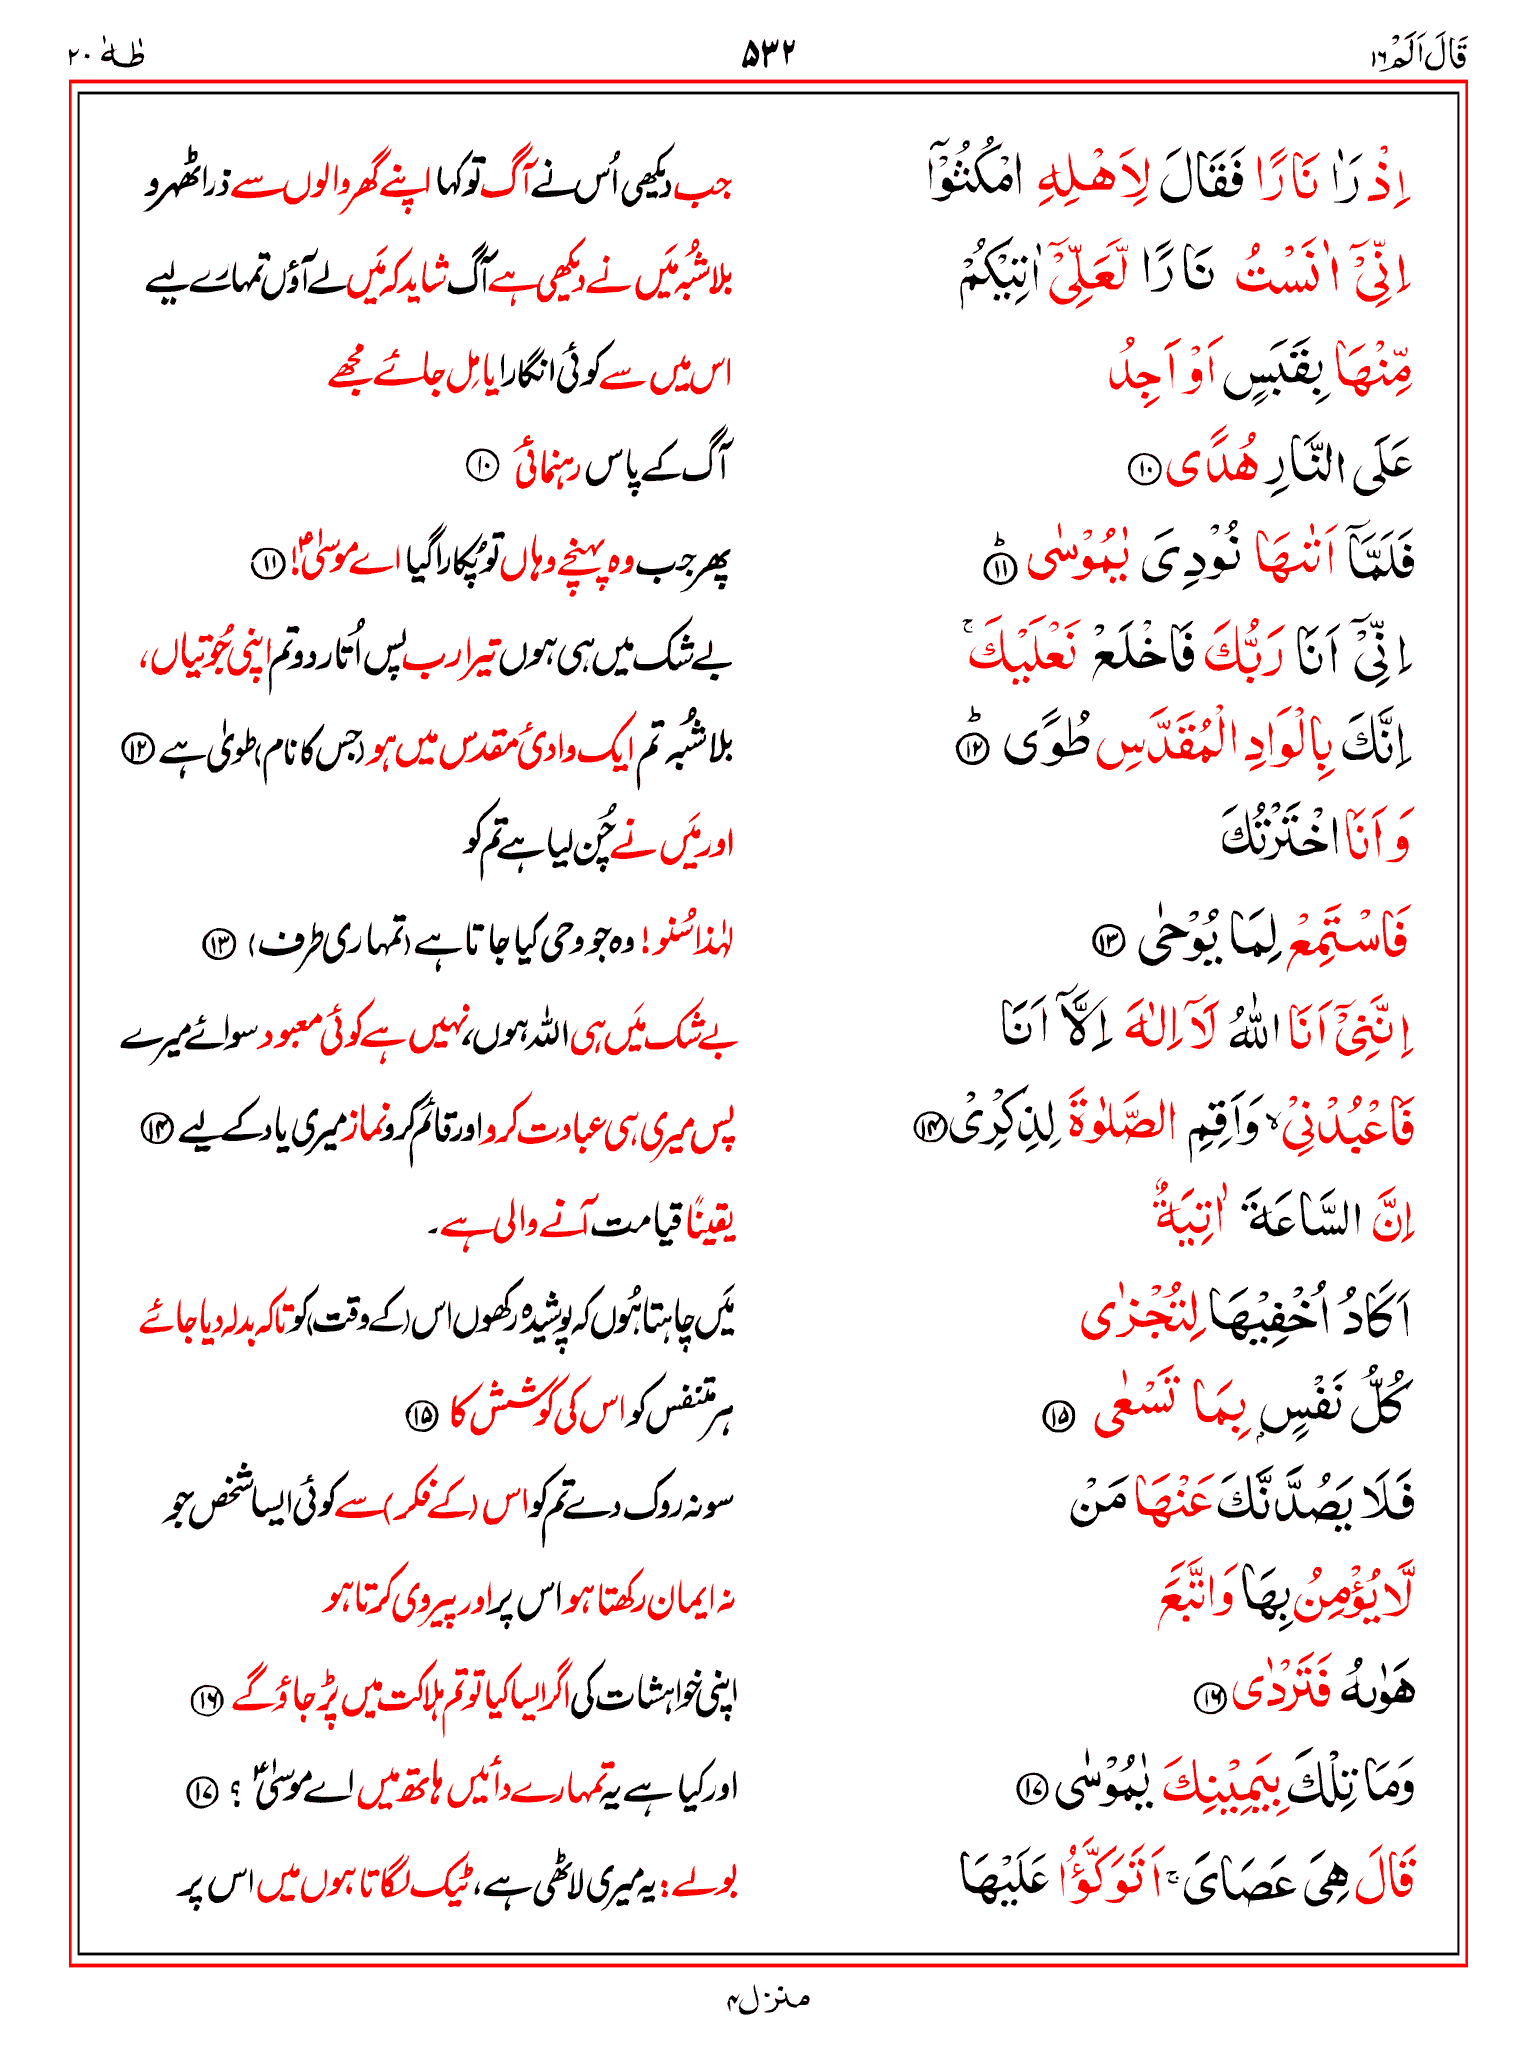 قَالَ اَلَمْ ١٦ ۵۳۲ طٰهٰ ۲۰
اِذْ رَاٰ نَارًا فَقَالَ لِاَهْلِهِ امْكُثُوْۤا جب دیکھی اُس نے آگ تو کہا اپنے گھر والوں سے ذرا ٹھہرو
اِنِّیْۤ اٰنَسْتُ نَارًا لَّعَلِّیْۤ اٰتِیْكُمْ بلاشُبہ مَیں نے دیکھی ہے آگ شاید کہ مَیں لے آؤں تمہارے لیے
مِّنْهَا بِقَبَسٍ اَوْ اَجِدُ اس میں سے کوئی انگارا یا مِل جائے مجھے
عَلَی النَّارِ هُدًی ⑩ آگ کے پاس رہنمائی ⑩
فَلَمَّاۤ اَتٰىهَا نُوْدِیَ یٰمُوْسٰی ؕ⑪ پھر جب وہ پہنچے وہاں تو پُکارا گیا اے موسٰیؑ! ⑪
اِنِّیْۤ اَنَا رَبُّكَ فَاخْلَعْ نَعْلَیْكَ ۚ بے شک میں ہی ہوں تیرا رب پس اُتار دو تم اپنی جُوتیاں،
اِنَّكَ بِالْوَادِ الْمُقَدَّسِ طُوًی ؕ⑫ بلاشُبہ تم ایک وادیٔ مقدس میں ہو (جس کا نام) طویٰ ہے ⑫
وَ اَنَا اخْتَرْتُكَ اور مَیں نے چُن لیا ہے تم کو
فَاسْتَمِعْ لِمَا یُوْحٰی ⑬ لہٰذا سُنو! وہ جو وحی کیا جاتا ہے (تمہاری طرف) ⑬
اِنَّنِیْۤ اَنَا اللّٰهُ لَاۤ اِلٰهَ اِلَّاۤ اَنَا بے شک مَیں ہی اللہ ہوں، نہیں ہے کوئی معبود سوائے میرے
فَاعْبُدْنِیْ ۙ وَاَقِمِ الصَّلٰوةَ لِذِكْرِیْ ⑭ پس میری ہی عبادت کرو اور قائم کرو نماز میری یاد کے لیے ⑭
اِنَّ السَّاعَةَ اٰتِیَةٌ یقینًا قیامت آنے والی ہے۔
اَكَادُ اُخْفِیْهَا لِتُجْزٰی مَیں چاہتا ہُوں کہ پوشیدہ رکھوں اس (کے وقت) کو تاکہ بدلہ دیا جائے
كُلُّ نَفْسٍۭ بِمَا تَسْعٰی ⑮ ہر متنفس کو اس کی کوشش کا ⑮
فَلَا یَصُدَّنَّكَ عَنْهَا مَنْ سو نہ روک دے تم کو اس (کے فکر) سے کوئی ایسا شخص جو
لَّا یُؤْمِنُ بِهَا وَاتَّبَعَ نہ ایمان رکھتا ہو اس پر اور پیروی کرتا ہو
هَوٰىهُ فَتَرْدٰی ⑯ اپنی خواہشات کی اگر ایسا کیا تو تم ہلاکت میں پڑ جاؤ گے ⑯
وَمَا تِلْكَ بِیَمِیْنِكَ یٰمُوْسٰی ⑰ اور کیا ہے یہ تمہارے دائیں ہاتھ میں اے موسٰیؑ؟ ⑰
قَالَ هِیَ عَصَایَ ۚ اَتَوَكَّؤُا عَلَیْهَا بولے: یہ میری لاٹھی ہے، ٹیک لگاتا ہوں میں اس پر
منزل ۴